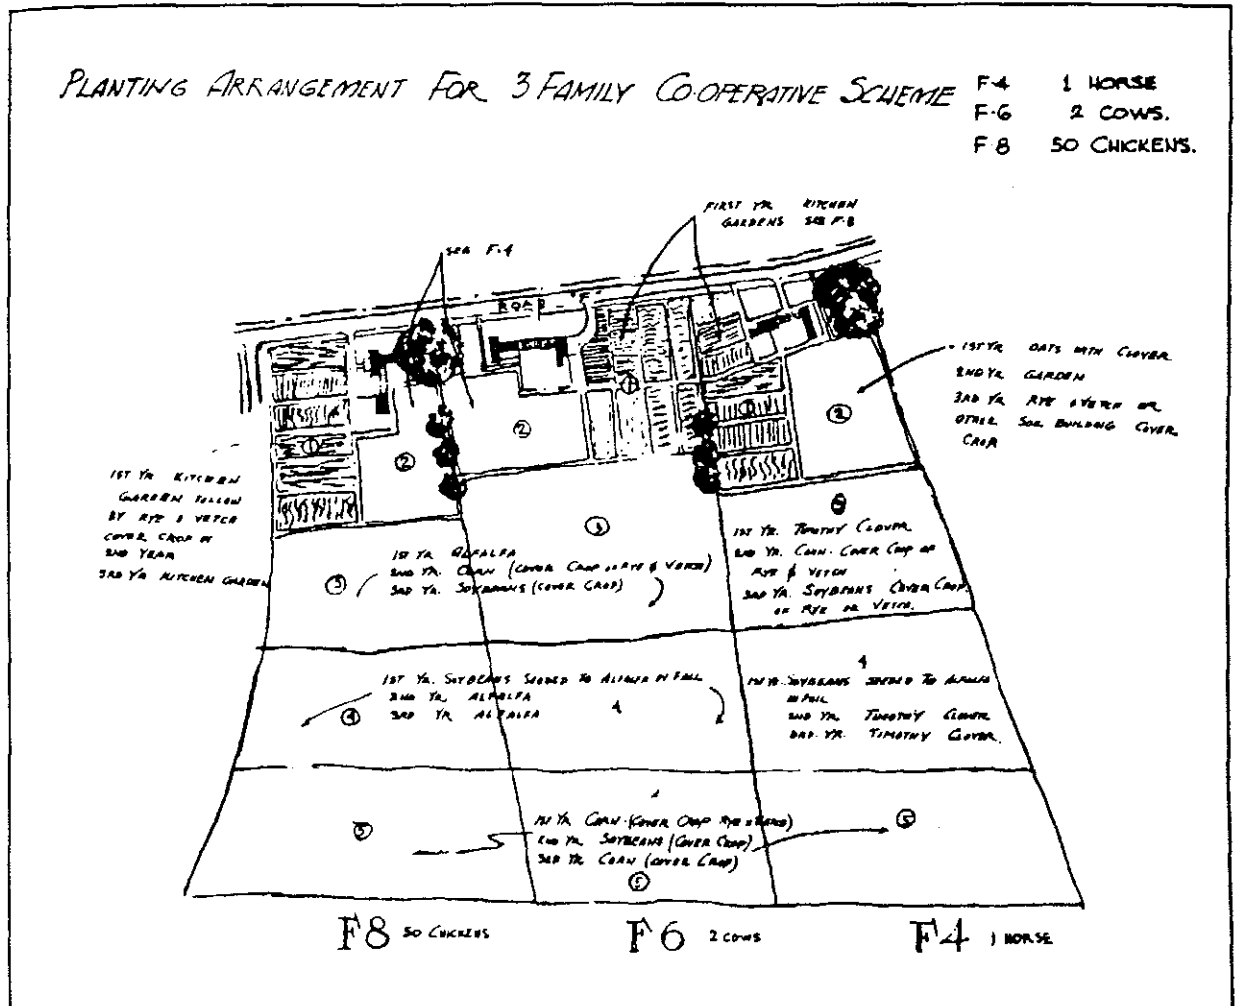 PLANTING ARRANGEMENT FOR 3 FAMILY CO-OPERATIVE SCHEME
F-4 1 HORSE
F-6 2 COWS.
F-8 50 CHICKENS.
FIRST YR. KITCHEN
GARDENS SEE F-8
SEE F-4
ROAD "F"
1ST YR OATS WITH CLOVER
2ND YR GARDEN
3RD YR RYE & VETCH OR
OTHER SOIL BUILDING COVER
CROP
1
2
2
1
1
2
1ST YR KITCHEN
GARDEN FOLLOW
BY RYE & VETCH
COVER CROP IN
2ND YEAR
3RD YR KITCHEN GARDEN
3
1ST YR ALFALFA
2ND YR. CORN (COVER CROP OF RYE & VETCH)
3RD YR. SOYBEANS (COVER CROP)
3
1ST YR. TIMOTHY CLOVER
2ND YR. CORN - COVER CROP OF
RYE & VETCH
3RD YR. SOYBEANS COVER CROP
OF RYE OR VETCH.
1ST YR. SOYBEANS SEEDED TO ALFALFA IN FALL
2ND YR. ALFALFA
3RD YR ALFALFA
4
4
4
1ST YR. SOYBEANS SEEDED TO ALFALFA
IN FALL
2ND YR. TIMOTHY CLOVER
3RD YR. TIMOTHY CLOVER.
5
1ST YR CORN (COVER CROP RYE &
2ND YR. SOYBEANS (COVER CROP)
3RD YR. CORN (COVER CROP)
5
5
F8 50 CHICKENS
F6 2 COWS
F4 1 HORSE